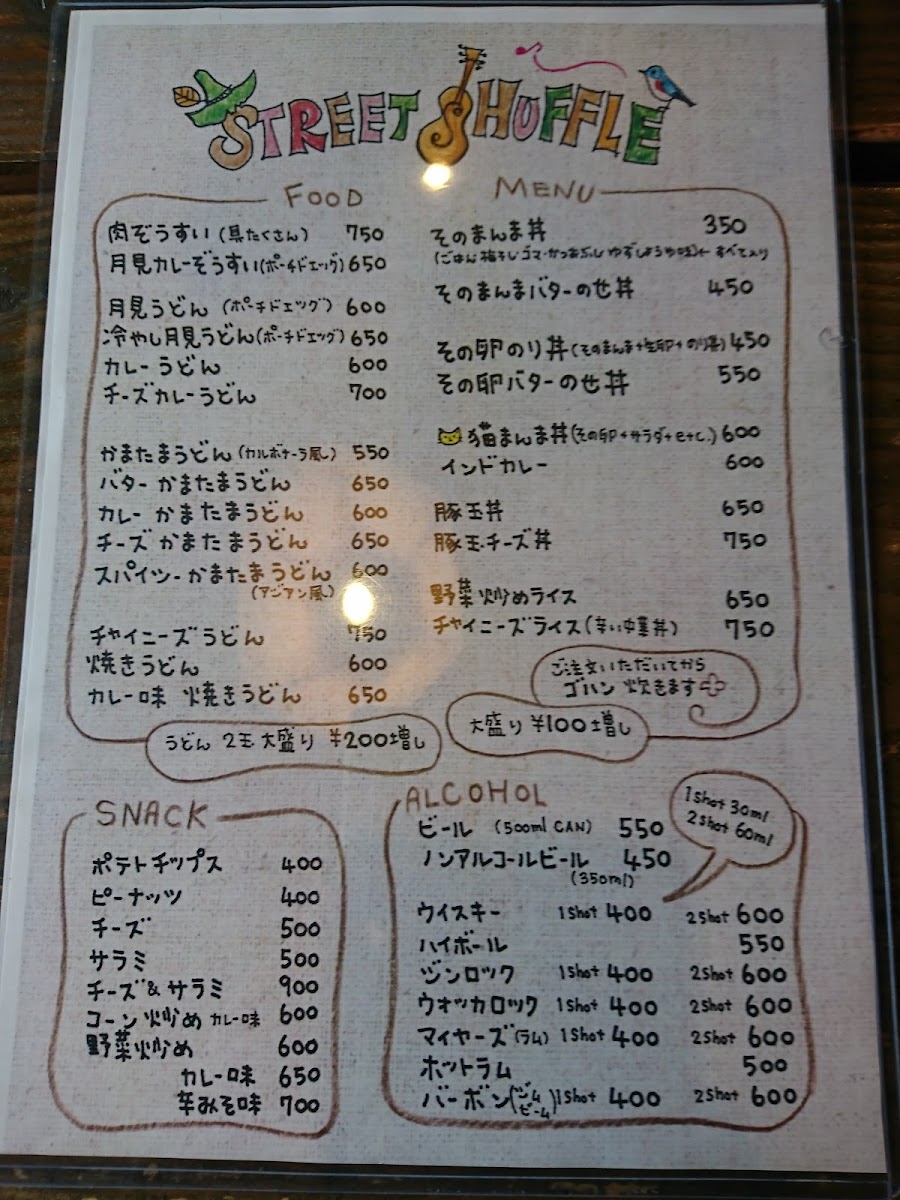 STREET SHUFFLE
FOOD MENU
肉ぞうすい (具たくさん) 750
月見カレーぞうすい(ポーチドエッグ) 650
月見うどん (ポーチドエッグ) 600
冷やし月見うどん(ポーチドエッグ) 650
カレーうどん 600
チーズカレーうどん 700
かまたまうどん(カルボナーラ風) 550
バター かまたまうどん 650
カレー かまたまうどん 600
チーズ かまたまうどん 650
スパイシーかまたまうどん 600
(アジアン風)
チャイニーズうどん 750
焼きうどん 600
カレー味 焼きうどん 650
うどん 2玉 大盛り ¥200増し
そのまんま丼 350
(ごはん 梅干し ゴマ・かつおぶし ゆずしょうゆ味)← すべて入り
そのまんまバターのせ丼 450
その卵のり丼(そのまんま+生卵+のり) 450
その卵バターのせ丼 550
猫まんま丼(その卵+サラダ+etc.) 600
インドカレー 600
豚玉丼 650
豚玉チーズ丼 750
野菜炒めライス 650
チャイニーズライス(辛い中華丼) 750
ご注文いただいてから
ゴハン 炊きます
大盛り ¥100増し
SNACK
ポテトチップス 400
ピーナッツ 400
チーズ 500
サラミ 500
チーズ&サラミ 900
コーン炒め カレー味 600
野菜炒め 600
カレー味 650
辛みそ味 700
ALCOHOL
1shot 30ml
2shot 60ml
ビール (500ml CAN) 550
ノンアルコールビール 450
(350ml)
ウイスキー 1shot 400 2shot 600
ハイボール 550
ジンロック 1shot 400 2shot 600
ウォッカロック 1shot 400 2shot 600
マイヤーズ(ラム) 1shot 400 2shot 600
ホットラム 500
バーボン(ジムビーム) 1shot 400 2shot 600